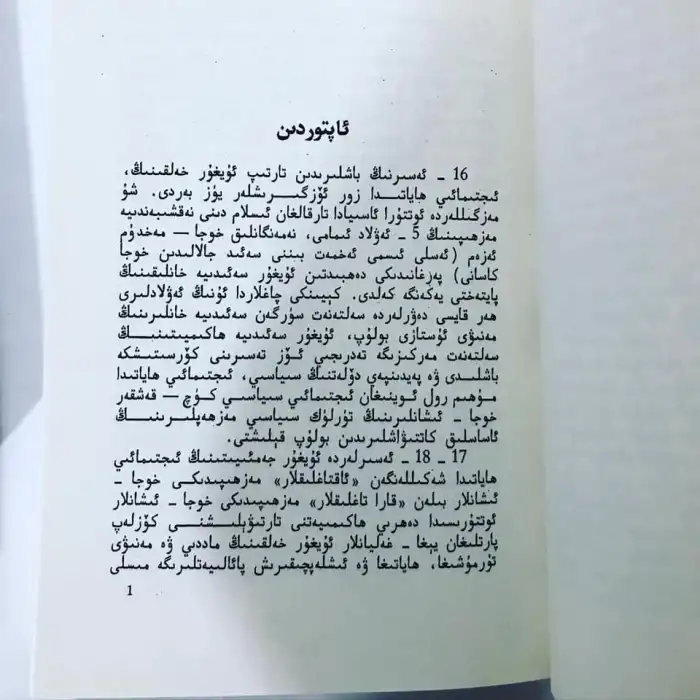 ئاپتوردىن
16 ـ ئەسىرنىڭ باشلىرىدىن تارتىپ ئۇيغۇر خەلقىنىڭ،
ئىجتىمائىي ھاياتىدا زور ئۆزگىرىشلەر يۈز بەردى. شۇ
مەزگىللەردە ئوتتۇرا ئاسىيادا تارقالغان ئىسلام دىنى نەقشىبەندىيە
مەزھىپىنىڭ 5 ـ ئەۋلاد ئىمامى، نەمەنگانلىق خوجا — مەخدۇم
ئەزەم (ئەسلى ئىسمى ئەخمەت بىننى سەئىد جالالىدىن خوجا
كاسانى) پەرغانىدىكى دەھبىدتىن ئۇيغۇر سەئىدىيە خانلىقىنىڭ
پايتەختى يەكەنگە كەلدى. كېيىنكى چاغلاردا ئۇنىڭ ئەۋلادلىرى
ھەر قايسى دەۋرلەردە سەلتەنەت سۈرگەن سەئىدىيە خانلىرىنىڭ
مەنىۋى ئۇستازى بولۇپ، ئۇيغۇر سەئىدىيە ھاكىمىيىتىنىڭ
سەلتەنەت مەركىزىگە تەدرىجىي ئۆز تەسىرىنى كۆرسىتىشكە
باشلىدى ۋە پەيدىنپەي دۆلەتنىڭ سىياسىي، ئىجتىمائىي ھاياتىدا
مۇھىم رول ئوينىغان ئىجتىمائىي سىياسىي كۈچ — قەشقەر
خوجا — ئىشانلىرىنىڭ تۈرلۈك سىياسىي مەزھەپلىرىنىڭ
ئاساسلىق كاتتىۋاشلىرىدىن بولۇپ قېلىشتى.
17 ـ 18 ـ ئەسىرلەردە ئۇيغۇر جەمئىيىتىنىڭ ئىجتىمائىي
ھاياتىدا شەكىللەنگەن «ئاقتاغلىقلار» مەزھىپىدىكى خوجا ـ
ئىشانلار بىلەن «قارا تاغلىقلار» مەزھىپىدىكى خوجا ـ ئىشانلار
ئوتتۇرىسىدا دەھرىي ھاكىمىيەتنى تارتىۋېلىشنى كۆزلەپ
پارتلىغان يېغا ـ غەليانلار ئۇيغۇر خەلقىنىڭ ماددىي ۋە مەنىۋى
تۇرمۇشىغا، ھاياتىغا ۋە ئىشلەپچىقىرىش پائالىيەتلىرىگە مىسلى
1